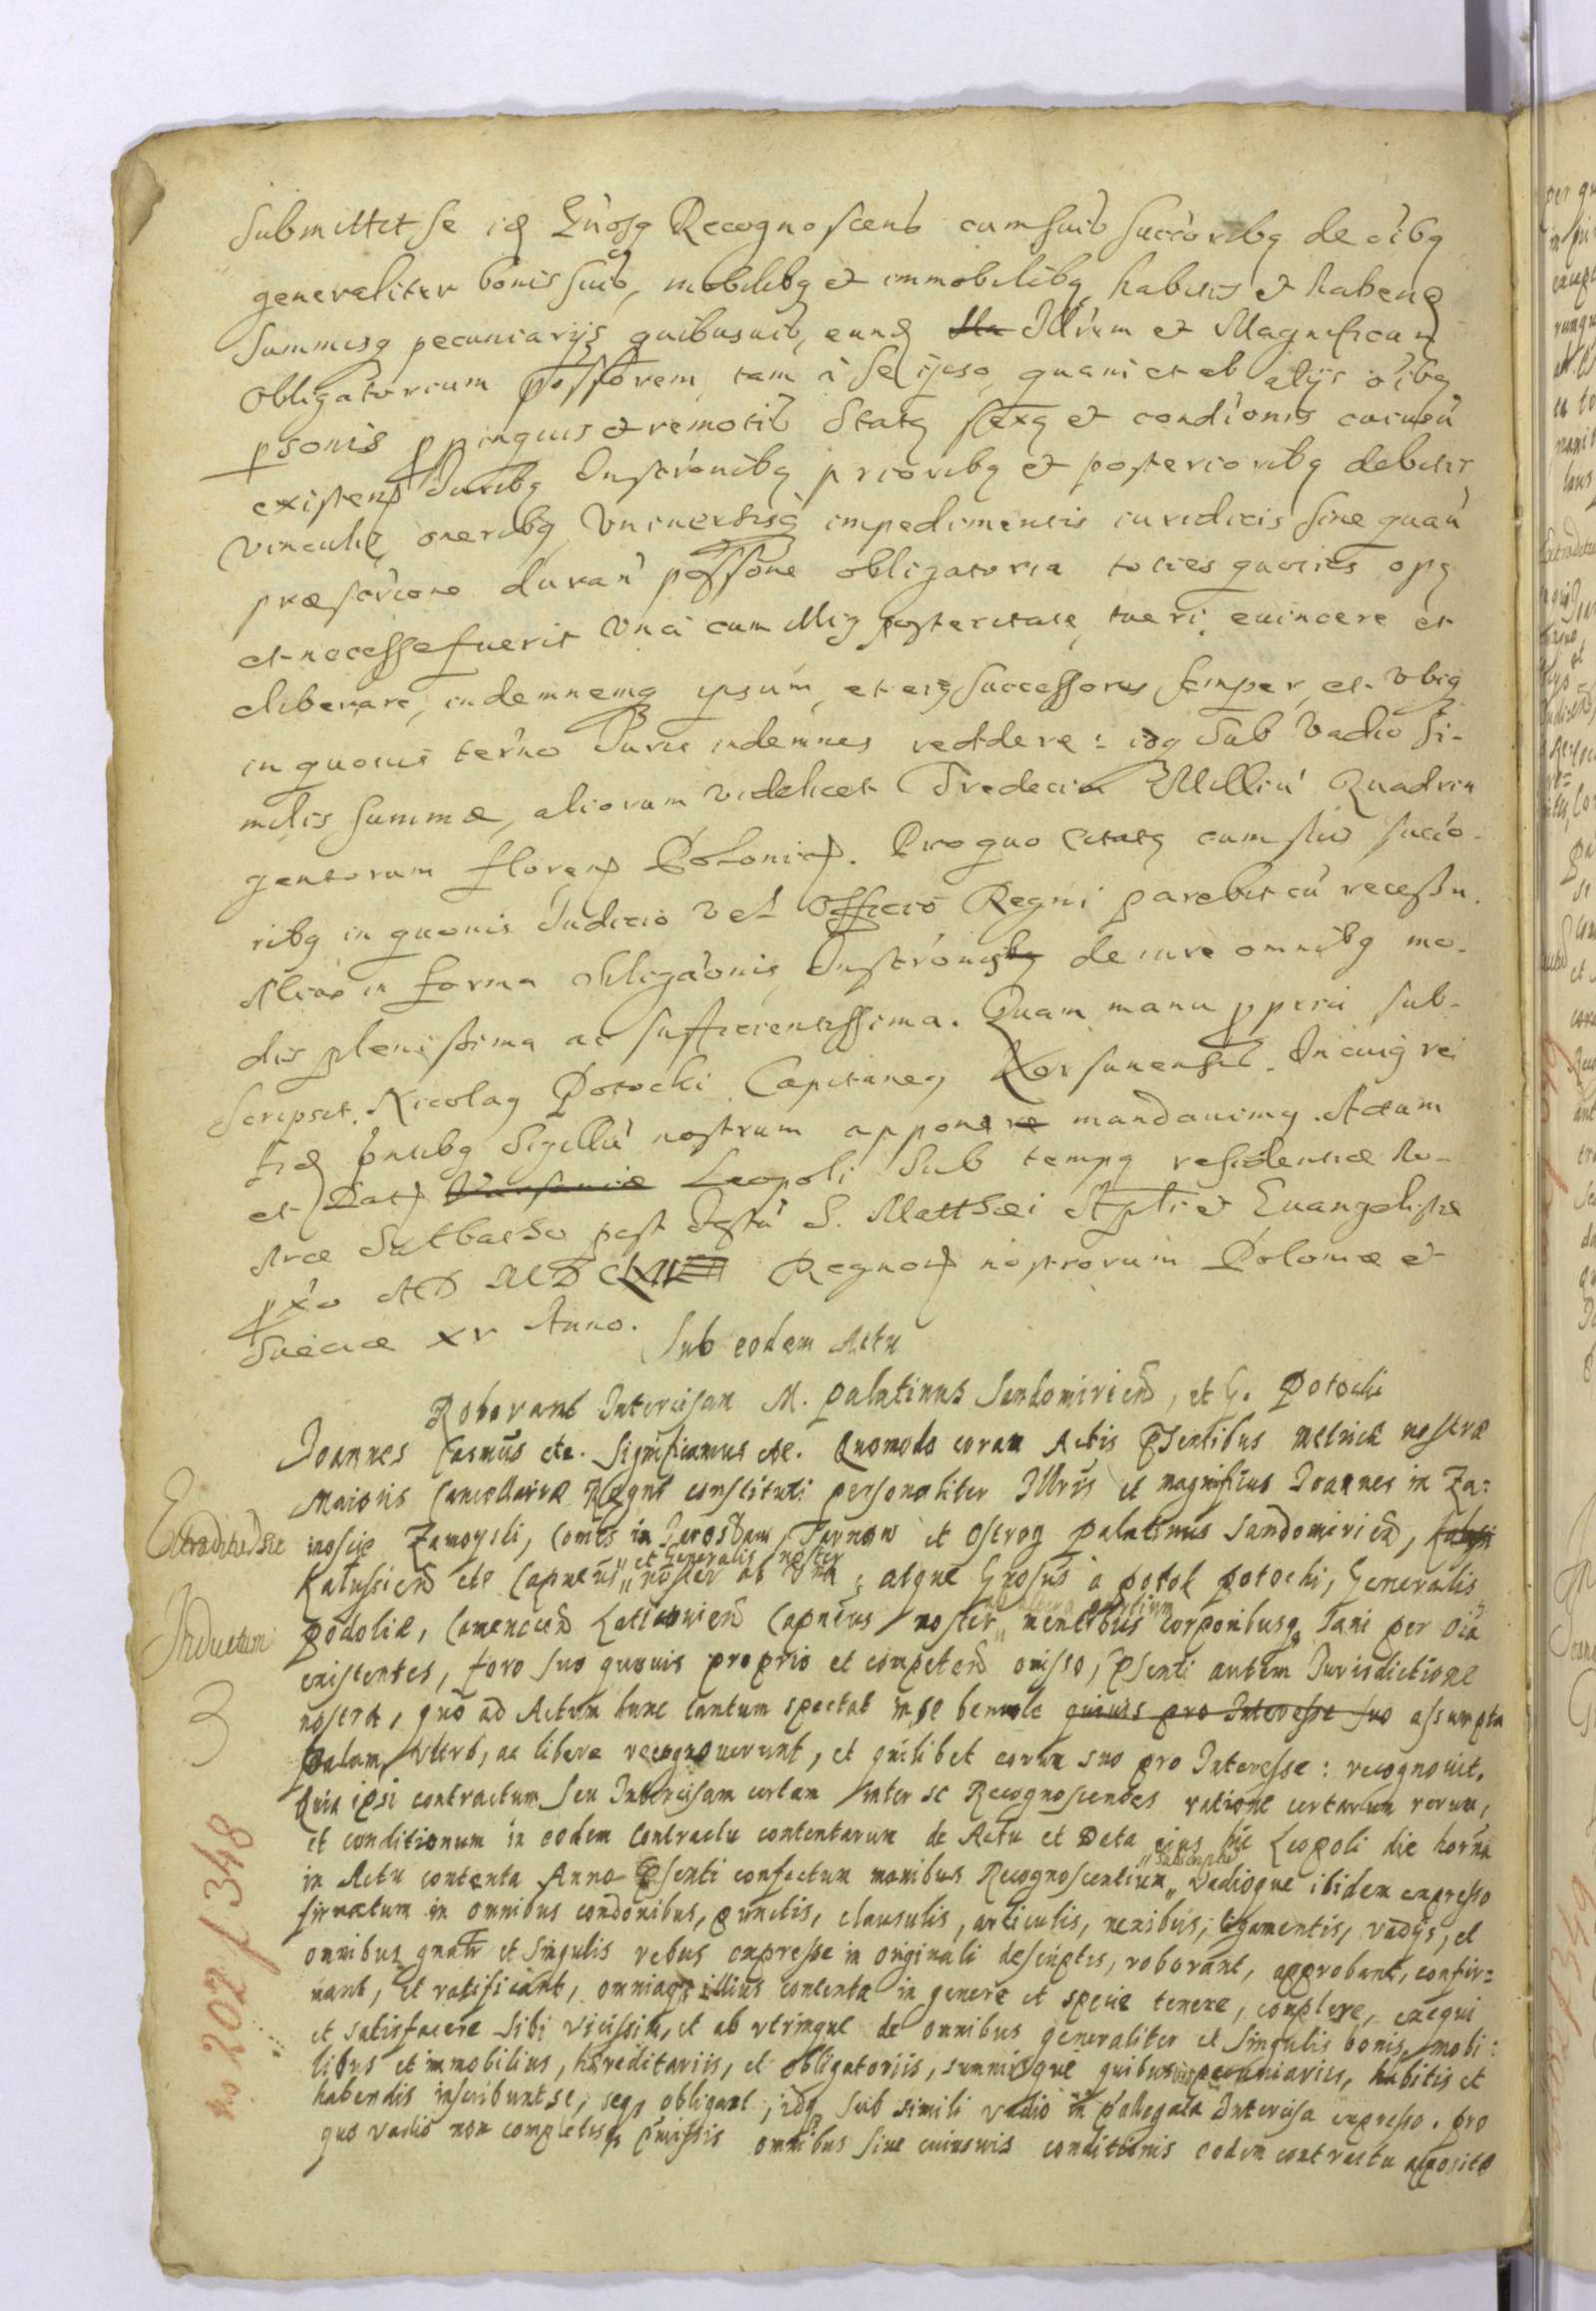 Submittit se idq Gnosq Recognoscens cum suis succoribq de oibq
generaliter bonis suis, mobilibq et immobilibq habitis et habendq
summisq pecuniarijs quibusuis, eundq Illrem et Magnificum
obligatorium possorem tam à se ipso quam et ab alijs oibq
psonis ppinquis et remotis Statq sexq et condionis cuiusu
existens Juribq Inscronibq prioribq et posterioribq debitis
vinculis oneribq vniuersisq impedimentis iuridicis sine quau
præscrione duran possone obligatoria toties quoties opq
et necesse fuerit vna cum illiq posteritate tueri, euincere et
liberare, indemnemq ipsum, et eiq successores semper et vbiq
in quouis terno Juris indemnes reddere: idq sub vadio si-
milis summæ, aliorum videlicet Tredecim Milliu Quadrin
gentorum floren Polonic. Pro quo citatq cum suis succo-
ribq in quouis Judicio vel Officio Regni parebit cu recessu.
Alias in forma obligaonis Inscronis de iure omnibq mo-
dis plenissima ac sufficientissima. Quam manu ppria sub-
scripsit. Nicolaq Potocki Capitaneq Korsunensis. In cuiq rei
fid pntibq Sigillu nostrum apponere mandauimq. Actum
et Dat Varsauiæ Leopoli Sub tempq residentiæ no-
stræ Sabbatho post festu S. Matthæi Apli et Euangelistæ
pxo AD MDCLXIII Regnor nostrorum Poloniæ et
Sueciæ XV Anno.
Sub eodem Actu
Roborant Intercisam M. Palatinus Sandomirien, et G. Potocki
Joannes Casmūs etc. Significamus etc. Quomodo coram Actis Psentibus Metricæ nostræ
Maioris Cancellariæ Regni constituti personaliter Illris et magnificus Joannes in Za:
Extraditu est
moscie Zamoyski, Comes in Jarosław, Tarnow et Ostrog palatinus Sandomirien,
et Generalis noster
Kałussien etc Capneus noster ab vna, atque Gnosus à potok potocki, Generalis
Inductum
podoliæ, Camenecien Laticouien Capneus noster mentibus corporibusq sani per oia
existentes, foro suo quouis proprio et competen omisso, Psenti autem Jurisdictione
3
nostra, quo ad Actum hunc tantum spectat in se beneuole quiuis pro Interesse suo assumpta
palam, vltro, ac libere recognouerunt, et quilibet eorum suo pro Interesse: recognouit.
Quia ipsi contractum seu Intercisam certam inter se Recognoscentes ratione certarum rerum,
et conditionum in eodem Contractu contentarum de Actu et Data eius hic Leopoli die horna
subscriptu
in Actu contenta Anno Psenti confectum manibus Recognoscentium Vadioque ibidem expresso
firmatum in omnibus condonibus, punctis, clausulis, articulis, nexibus, ligamentis, vadijs, et
omnibus gnatr et singulis rebus expresse in originali descriptis, roborant, approbant, confir:
mant, et ratificant, omniaq illius contenta in genere et specie tenere, complere, exequi
et satisfacere sibi vicissim, et ab vtrinque de omnibus generaliter et singulis bonis, mobi:
libus et immobilius, hæreditariis, et obligatoriis, summisque quibusuis pecuniariis, habitis et
habendis inscribunt se, seq obligant, idq sub simili vadio in pallegata Intercisa expresso. pro
quo vadio non completisq pmissis omnibus siue cuiusuis conditionis eodem contractu apposite
No 202 f 348